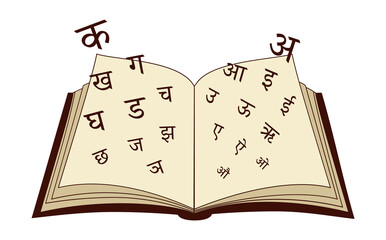 क
ख ग
घ ड च
छ ज झ
ञ
अ
आ इ
उ ऊ ई
ए ऐ ऋ
औ ओ